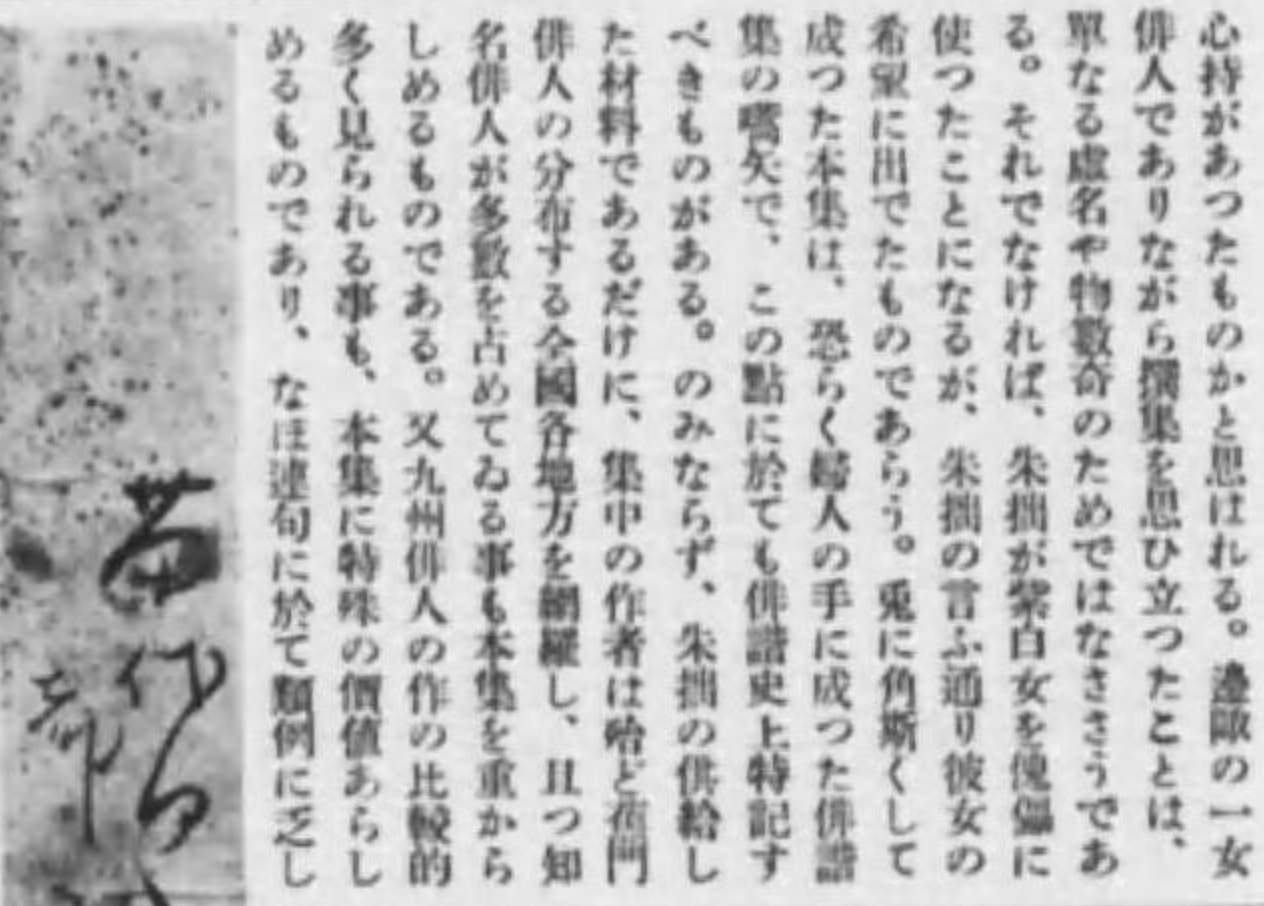 心持があつたものかと思はれる。邊陬の一女
俳人でありながら撰集を思ひ立つたことは、
單なる虛名や物數奇のためではなささうであ
る。それでなければ、朱拙が紫白女を傀儡に
使つたことになるが、朱拙の言ふ通り彼女の
希望に出でたものであらう。兎に角斯くして
成つた本集は、恐らく婦人の手に成つた俳諧
集の嚆矢で、この點に於ても俳諧史上特記す
べきものがある。のみならず、朱拙の供給し
た材料であるだけに、集中の作者は殆ど蕉門
俳人の分布する全國各地方を網羅し、且つ知
名俳人が多數を占めてゐる事も本集を重から
しめるものである。又九州俳人の作の比較的
多く見られる事も、本集に特殊の價値あらし
めるものであり、なほ連句に於て類例に乏し